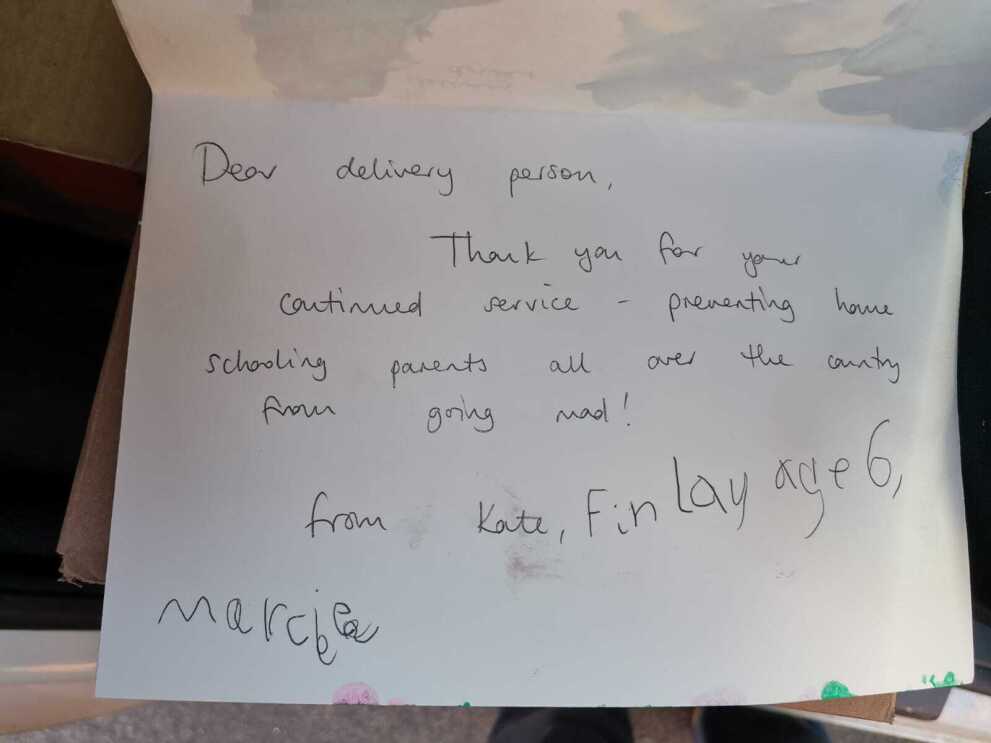 Dear delivery person,
Thank you for your
continued service - preventing home
schooling parents all over the country
from going mad!
from Kate, Finlay age 6,